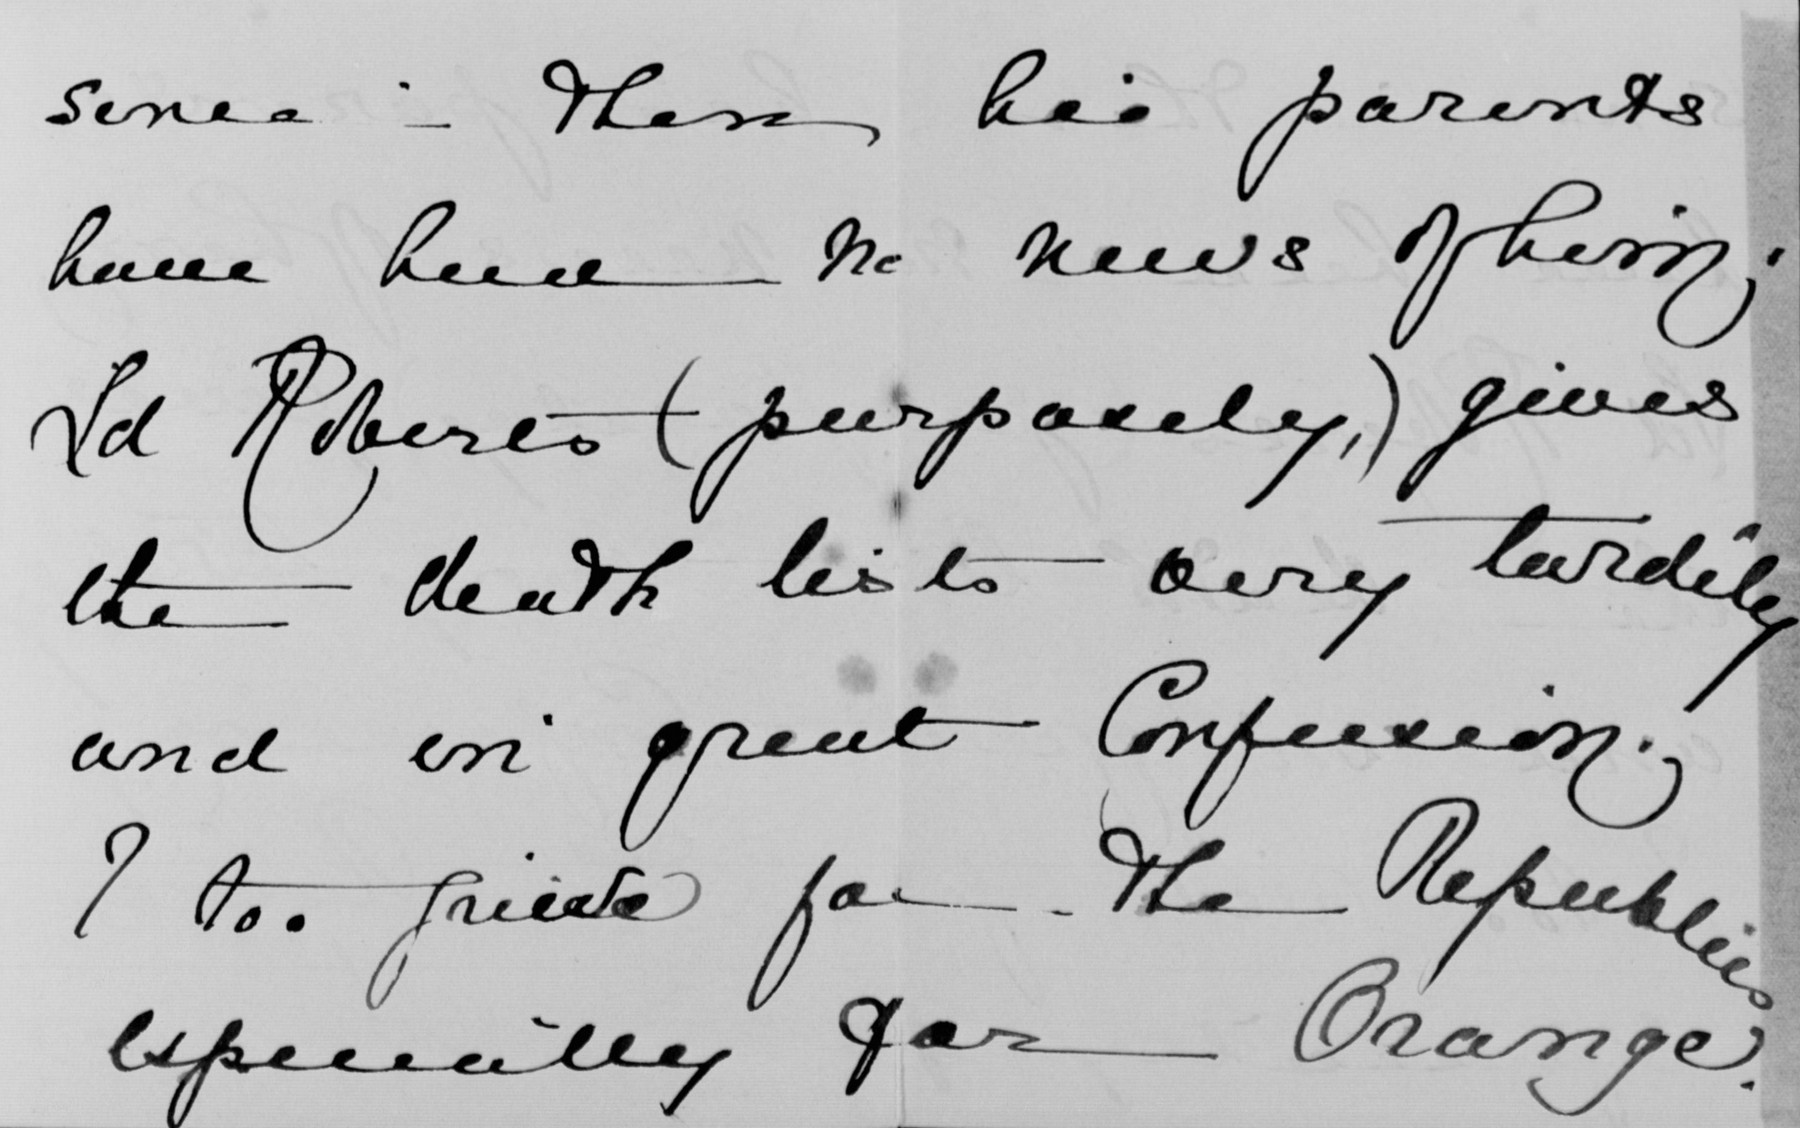 since - then his parents
have had no news of him;
Ld Roberts (purposely,) gives
the death lists very tardily
and in great Confusion;
I too grieve for the Republics
especially for Orange.